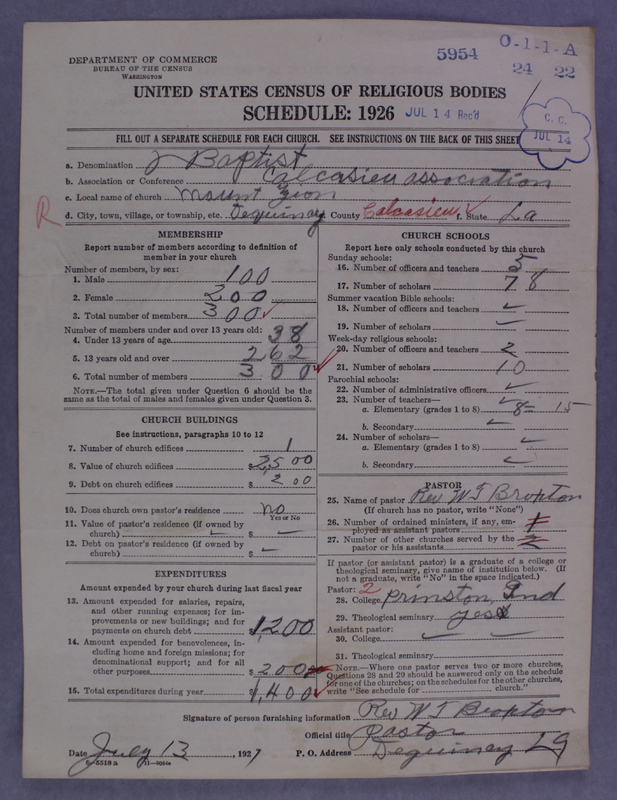 DEPARTMENT OF COMMERCE
BUREAU OF THE CENSUS
WASHINGTON
5954
O-1-1-A
24 22
UNITED STATES CENSUS OF RELIGIOUS BODIES
SCHEDULE: 1926
JUL 14 Rec'd
C. C.
JUL 14
FILL OUT A SEPARATE SCHEDULE FOR EACH CHURCH. SEE INSTRUCTIONS ON THE BACK OF THIS SHEET
a. Denomination Baptist
b. Association or Conference Calcasieu association
c. Local name of church Mount Zion
R
d. City, town, village, or township, etc. Dequincy County Calcasieu f. State La
MEMBERSHIP
Report number of members according to definition of member in your church
Number of members, by sex:
1. Male 100
2. Female 200
3. Total number of members 300
Number of members under and over 13 years old:
4. Under 13 years of age 38
5. 13 years old and over 262
6. Total number of members 300
NOTE.—The total given under Question 6 should be the same as the total of males and females given under Question 3.
CHURCH BUILDINGS
See instructions, paragraphs 10 to 12
7. Number of church edifices 1
8. Value of church edifices $2,500
9. Debt on church edifices $200
10. Does church own pastor's residence? no
Yes or No
11. Value of pastor's residence (if owned by church) $
12. Debt on pastor's residence (if owned by church) $
EXPENDITURES
Amount expended by church during last fiscal year
13. Amount expended for salaries, repairs, and other running expenses; for improvements or new buildings; and for payments on church debt $1,200
14. Amount expended for benevolences, including home and foreign missions; for denominational support; and for all other purposes $200
15. Total expenditures during year $1,400
CHURCH SCHOOLS
Report here only schools conducted by this church
Sunday schools:
16. Number of officers and teachers 5
17. Number of scholars 78
Summer vacation Bible schools:
18. Number of officers and teachers
19. Number of scholars
Week-day religious schools:
20. Number of officers and teachers 2
21. Number of scholars 10
Parochial schools:
22. Number of administrative officers
23. Number of teachers—
a. Elementary (grades 1 to 8) 8= 15
b. Secondary
24. Number of scholars—
a. Elementary (grades 1 to 8)
b. Secondary
PASTOR
25. Name of pastor Rev W T Bropton
(If church has no pastor, write "None")
26. Number of ordained ministers, if any, employed as assistant pastors 1
27. Number of other churches served by the pastor or his assistants 2
If pastor (or assistant pastor) is a graduate of a college or theological seminary, give name of institution below. (If not a graduate, write "No" in the space indicated.)
Pastor: 2
28. College prinston, Ind
29. Theological seminary yes
Assistant pastor:
30. College
31. Theological seminary
NOTE.—Where one pastor serves two or more churches, Questions 28 and 29 should be answered only on the schedule for one of the churches; on the schedules for the other churches, write "See schedule for church."
Signature of person furnishing information Rev W T Bropton
Official title Pastor
Date July 13, 1927 P. O. Address Dequincy La